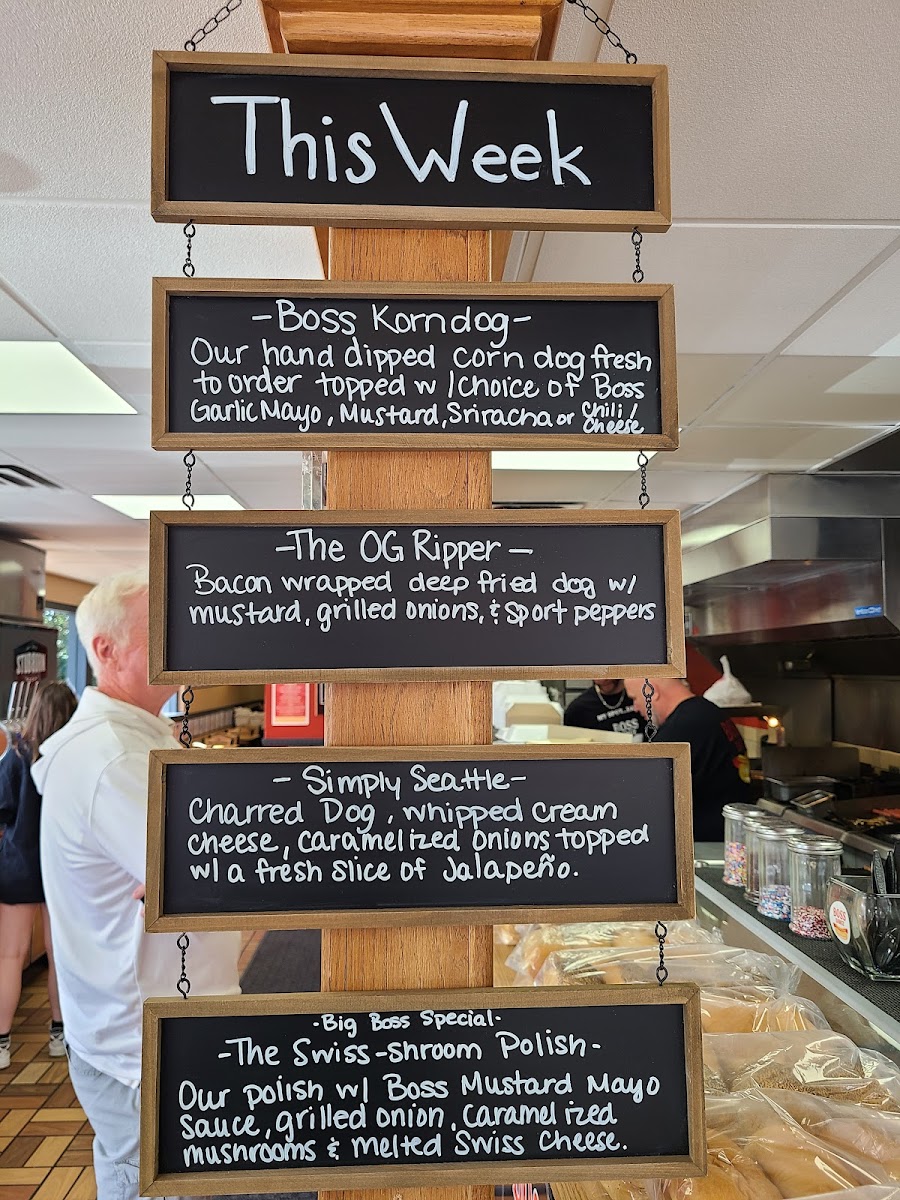 This Week
-Boss Korndog-
Our hand dipped corn dog fresh
to order topped w/choice of Boss
Garlic Mayo, Mustard, Sriracha or Chili/
Cheese
-The OG Ripper-
Bacon wrapped deep fried dog w/
mustard, grilled onions, & sport peppers
- Simply Seattle-
Charred Dog, whipped cream
cheese, caramelized onions topped
w/ a fresh slice of Jalapeño.
-Big Boss Special-
-The Swiss-Shroom Polish-
Our polish w/ Boss Mustard Mayo
Sauce, grilled onion, caramelized
mushrooms & melted Swiss Cheese.
STUBBORN
BOSS
BOSS